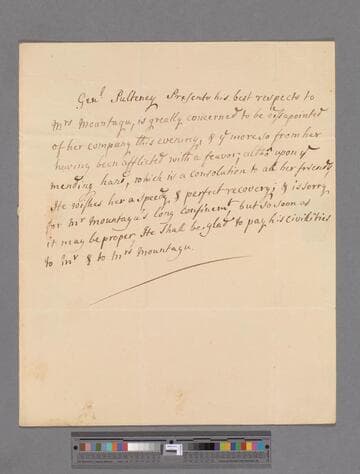 Gen.l Pulteney Presents his best respects to
Mrs Mountagu, is greatly concerned to be dissapointed
of her company this evening, & ye more so from her
having been afflicted with a feavor, altho upon ye
mending hand, which is a consolation to all her friends
He wishes her a speedy, & perfect recovery; & is sorry
for Mr Mountagu's long confinemt, but so soon as
it may be proper He shall be glad to pay his Civilities
to Mr & to Mrs Mountagu.